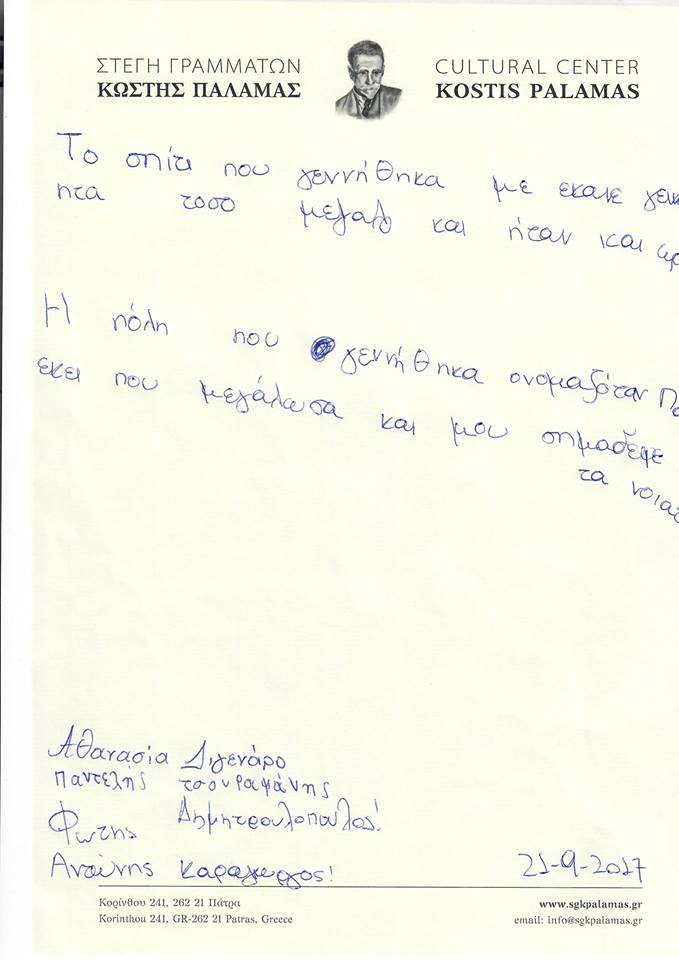 ΣΤΕΓΗ ΓΡΑΜΜΑΤΩΝ
ΚΩΣΤΗΣ ΠΑΛΑΜΑΣ
CULTURAL CENTER
KOSTIS PALAMAS
Το σπίτι που γεννήθηκα με εκανε
ητα τοσο μεγαλο και ήταν και
Η πόλη που γεννήθηκα ονομαζόταν
εκει που μεγάλωσα και μου σημαδεψε
τα
Αθανασία Διγενάρο
Παντελής τσουραφάνης
Φωτης Δημητρουλοπουλος!
Αντώνης Καραγιωργος!
21-9-2017
Κορίνθου 241, 262 21 Πάτρα
Korinthou 241, GR-262 21 Patras, Greece
www.sgkpalamas.gr
email: info@sgkpalamas.gr